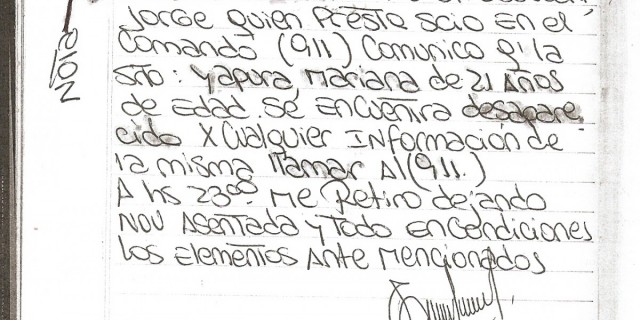 Jorge quien Presta scio En el
Comando (911) Comunico q' la
srta: Yapura, Mariana de 21 Años
de Edad. se encuentra desapare
cido X Cualquier Información de
la misma llamar Al (911.)
A hs 23⁰⁰. Me Retiro dejando
NOV Asentada y Todo En Condiciones
los Elementos Ante Mencionados
NOTA